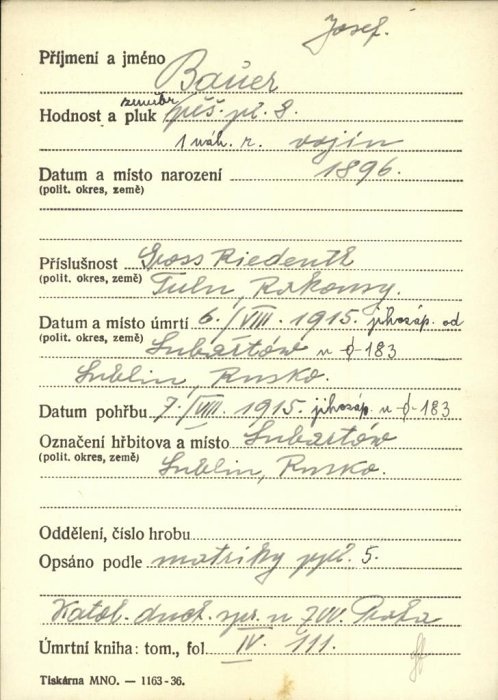 Josef.
Příjmení a jméno Bauer
Hodnost a pluk pěš. pl. 8.
1 náh. r. vojín
Datum a místo narození 1896.
(polit. okres, země)
Příslušnost Gross Riedenth
(polit. okres, země) Tuln, Rakousy.
Datum a místo úmrtí 6./VIII. 1915. jihozáp. od
(polit. okres, země) Lubartów u ϕ-183
Lublin, Rusko.
Datum pohřbu 7./VIII. 1915. jihozáp. u ϕ-183
Označení hřbitova a místo Lubartów
(polit. okres, země) Lublin, Rusko.
Oddělení, číslo hrobu
Opsáno podle matriky ppl. 5.
Katol. duch. spr. u ZVV. Praha
Úmrtní kniha: tom., fol IV. 111.
Tiskárna MNO. — 1163-36.